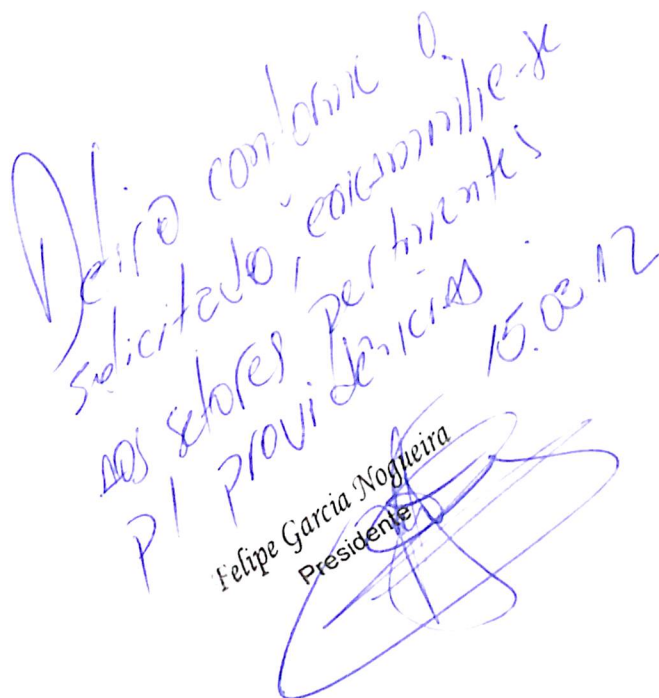 Defiro conforme o
solicitado, encaminhe-se
aos setores pertinentes
p/ providências.
15.03.12
Felipe Garcia Nogueira
Presidente